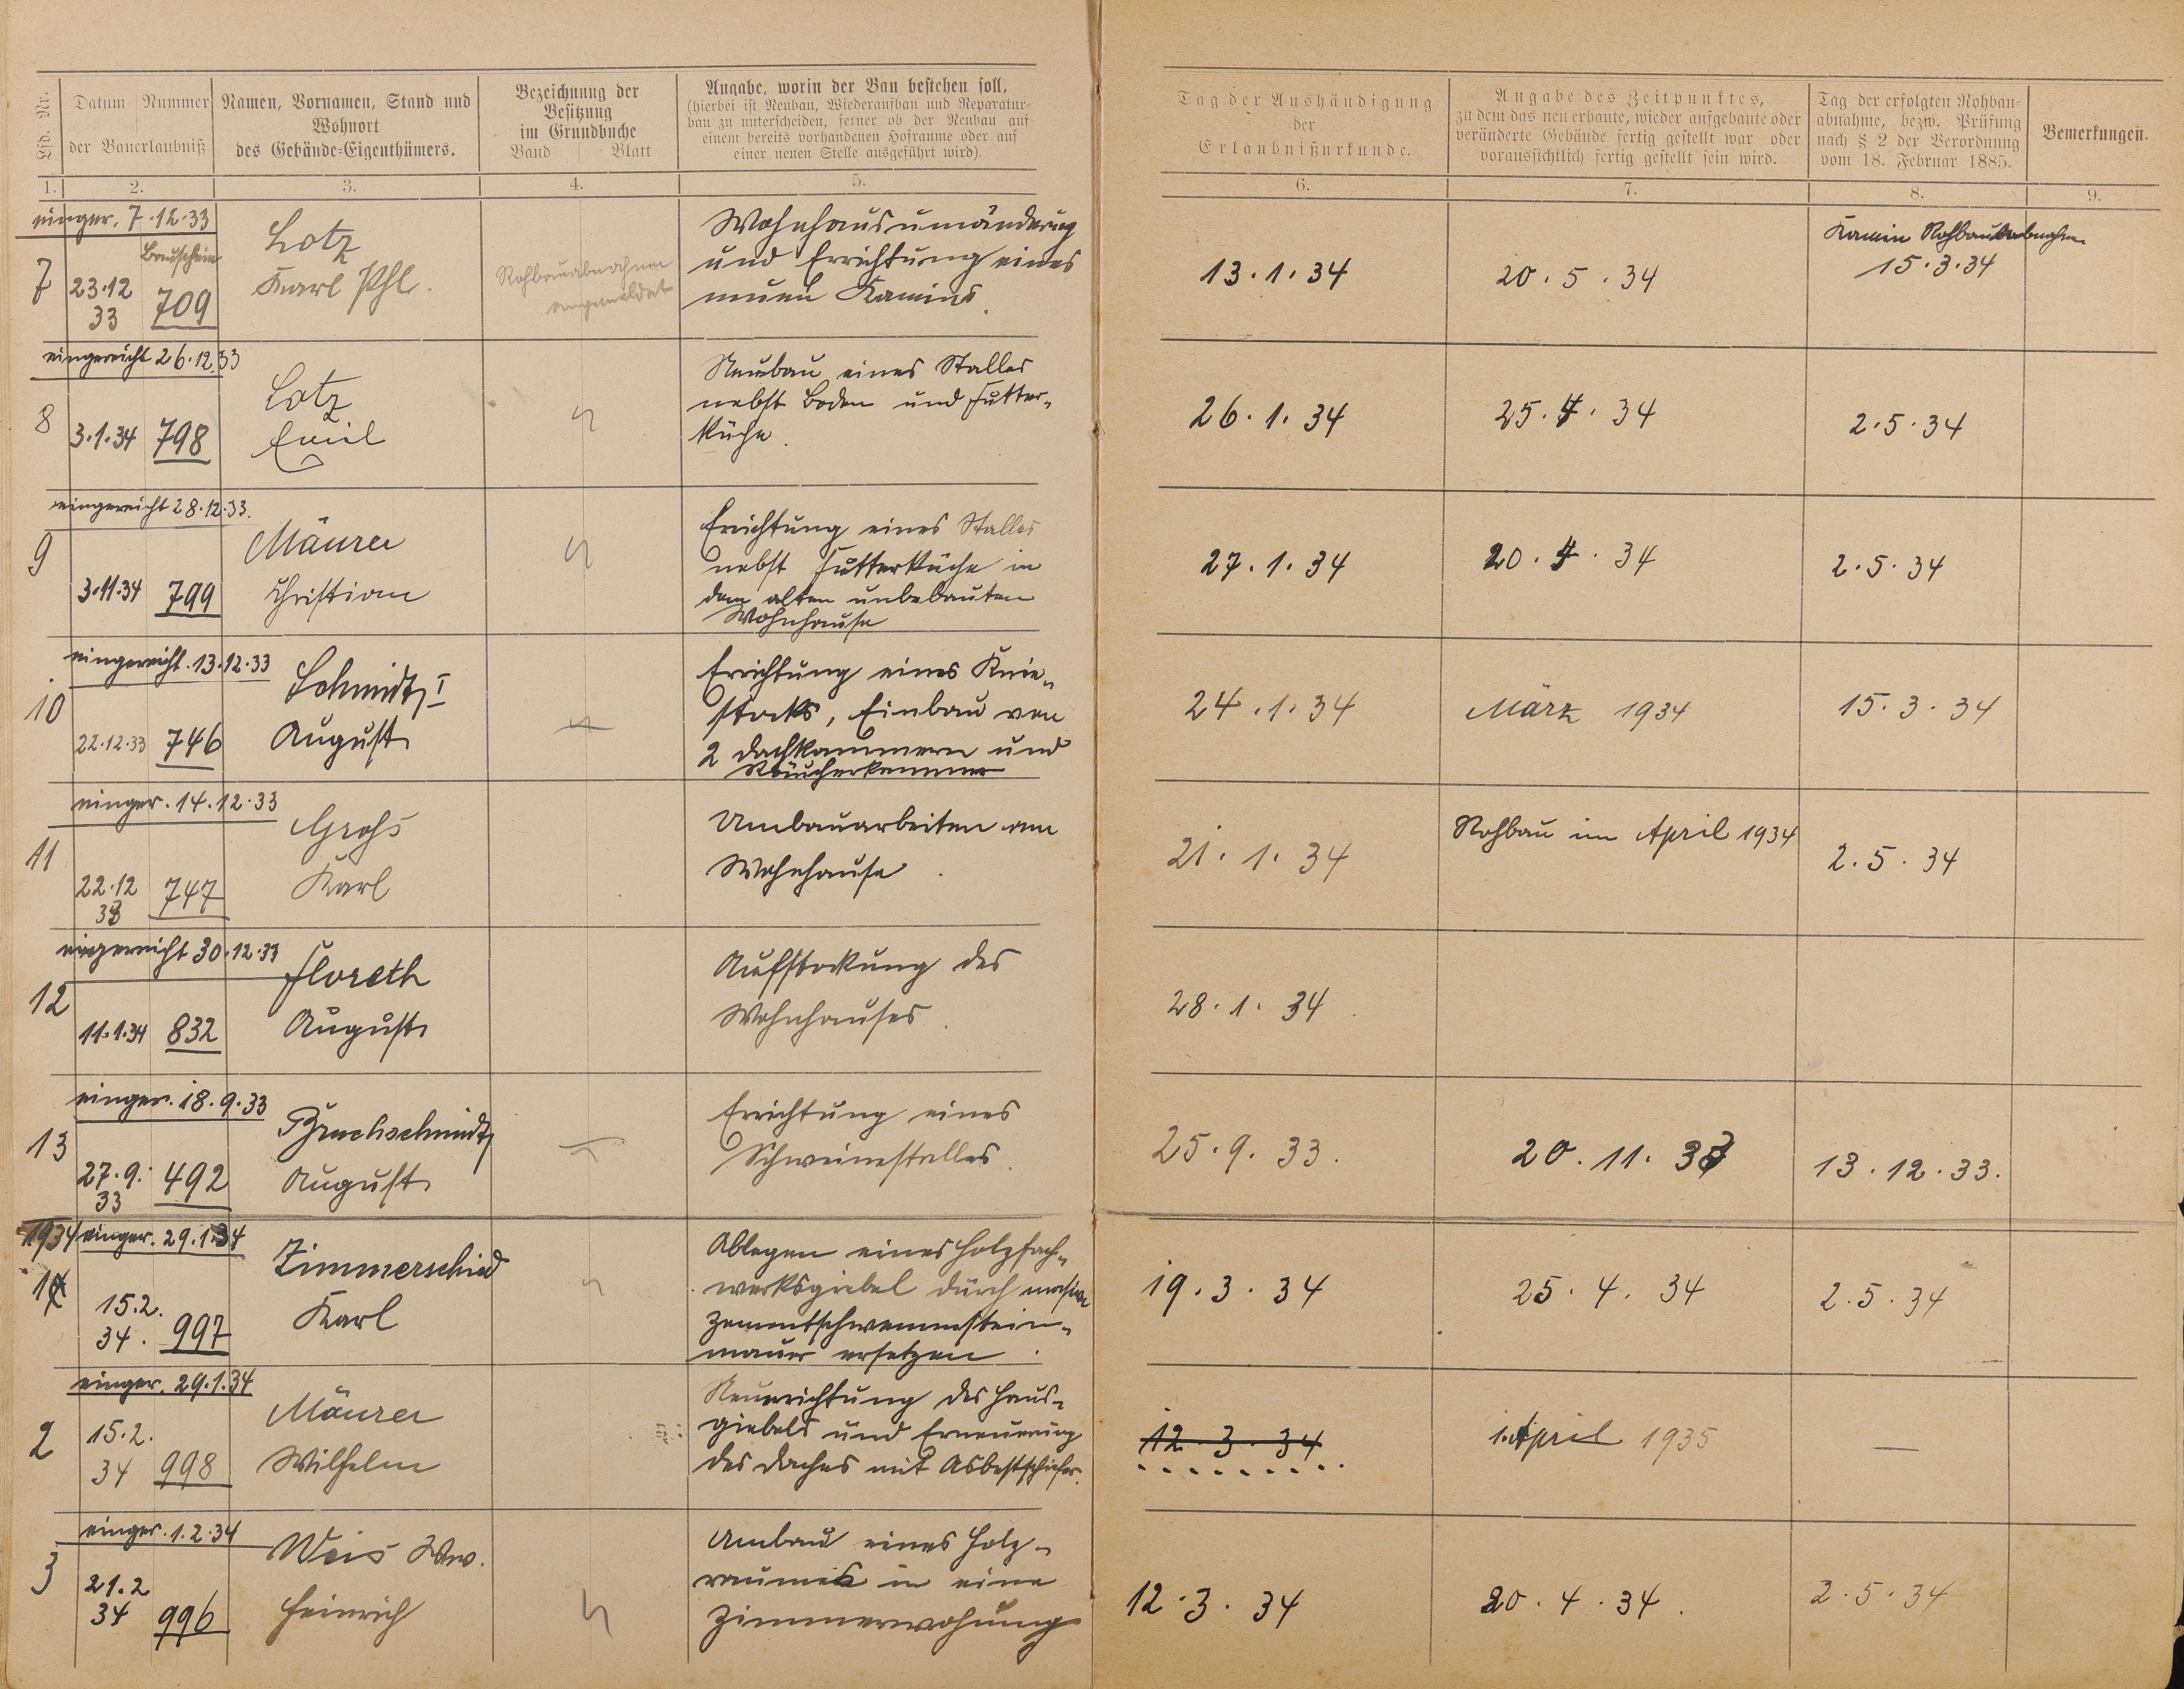 Lfd. Nr.
Datum
Nummer
der Bauerlaubniß
Namen, Vornamen, Stand und
Wohnort
des Gebäude-Eigenthümers.
Bezeichnung der
Besitzung
im Grundbuche
Band Blatt
Angabe, worin der Bau bestehen soll,
(hierbei ist Neubau, Wiederaufbau und Reparatur-
bau zu unterscheiden, ferner ob der Neubau auf
einem bereits vorhandenen Hofraume oder auf
einer neuen Stelle ausgeführt wird).
Tag der Aushändigung
der
Erlaubnißurkunde.
Angabe des Zeitpunktes,
zu dem das neu erbaute, wieder aufgebaute oder
veränderte Gebäude fertig gestellt war oder
voraussichtlich fertig gestellt sein wird.
Tag der erfolgten Rohbau-
abnahme, bezw. Prüfung
nach § 2 der Verordnung
vom 18. Februar 1885.
Bemerkungen.
1. 2. 3. 4. 5. 6. 7. 8. 9.
einger. 7.12.33
Bauschein
7
23.12
33
709
Lotz
Karl Phl.
Rohbauabnahme
angemeldet
Wohnhausumänderung
und Errichtung eines
neuen Kamins.
13.1.34
20.5.34
Kamin Rohbauabnahme
15.3.34
eingereicht 26.12.33
8
3.1.34
798
Lotz
Emil
Neubau eines Stalles
nebst Boden und Futter-
küche.
26.1.34
25.4.34
2.5.34
eingereicht 28.12.33.
9
3.11.34
799
Mäurer
Christian
Errichtung eines Stalles
nebst Futterküche in
dem alten unbebauten
Wohnhause
27.1.34
20.4.34
2.5.34
eingereicht.13.12.33
10
22.12.33
746
Schmidt I
August
Errichtung eines Knie-
stocks, Einbau von
2 Dachkammern und
Räucherkammer
24.1.34
März 1934
15.3.34
einger.14.12.33
11
22.12
33
747
Groß
Karl
Umbauarbeiten am
Wohnhause.
21.1.34
Rohbau im April 1934
2.5.34
eingereicht 30.12.33
12
11.1.34
832
Floreth
August
Aufstockung des
Wohnhauses.
28.1.34.
einger. 18.9.33
13
27.9.
33
492
Bruchschmidt
August
Errichtung eines
Schweinestalles.
25.9.33.
20.11.33
13.12.33.
1934 einger. 29.1.34
1
15.2.
34.
997
Zimmerschied
Karl
Ablegen eines Holzfach-
werksgiebel durch
Zementschwemmstein-
mauer ersetzen.
19.3.34
25.4.34
2.5.34
einger. 29.1.34
2
15.2.
34
998
Mäurer
Wilhelm
Neuerrichtung des Haus-
giebels und Erneuerung
des Daches mit Asbestschiefer.
12.3.34
1. April 1935
—
einger. 1.2.34
3
21.2
34
996
Weis Ww.
Heinrich
Umbau eines Holz-
raumes in eine
Zimmerwohung
12.3.34
20.4.34.
2.5.34